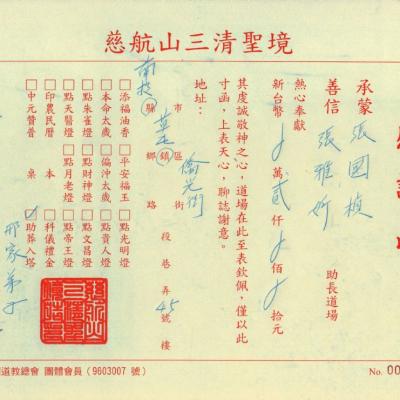 慈航山三清聖境
承蒙 張國楨
善信 張雅妡 助長道場
熱心奉獻
新台幣 萬貳仟 佰 拾元
其虔誠敬神之心，道場在此至表欽佩，僅以此
寸函，上表天心，聊誌謝意。
地址：
南投縣市 鄉鎮區 僑光街路 段 巷 弄 45號 樓
□添福油香 □平安福玉 □點光明燈
□本命太歲 □偏沖太歲 □點貴人燈
□點朱雀燈 □點財神燈 □點文昌燈
□點天醫燈 □點月老燈 □點帝王燈
□印農民曆 □科儀禮金
□中元贊普 桌 □助葬入塔
本
道教總會 團體會員（9603007 號）
No. 00